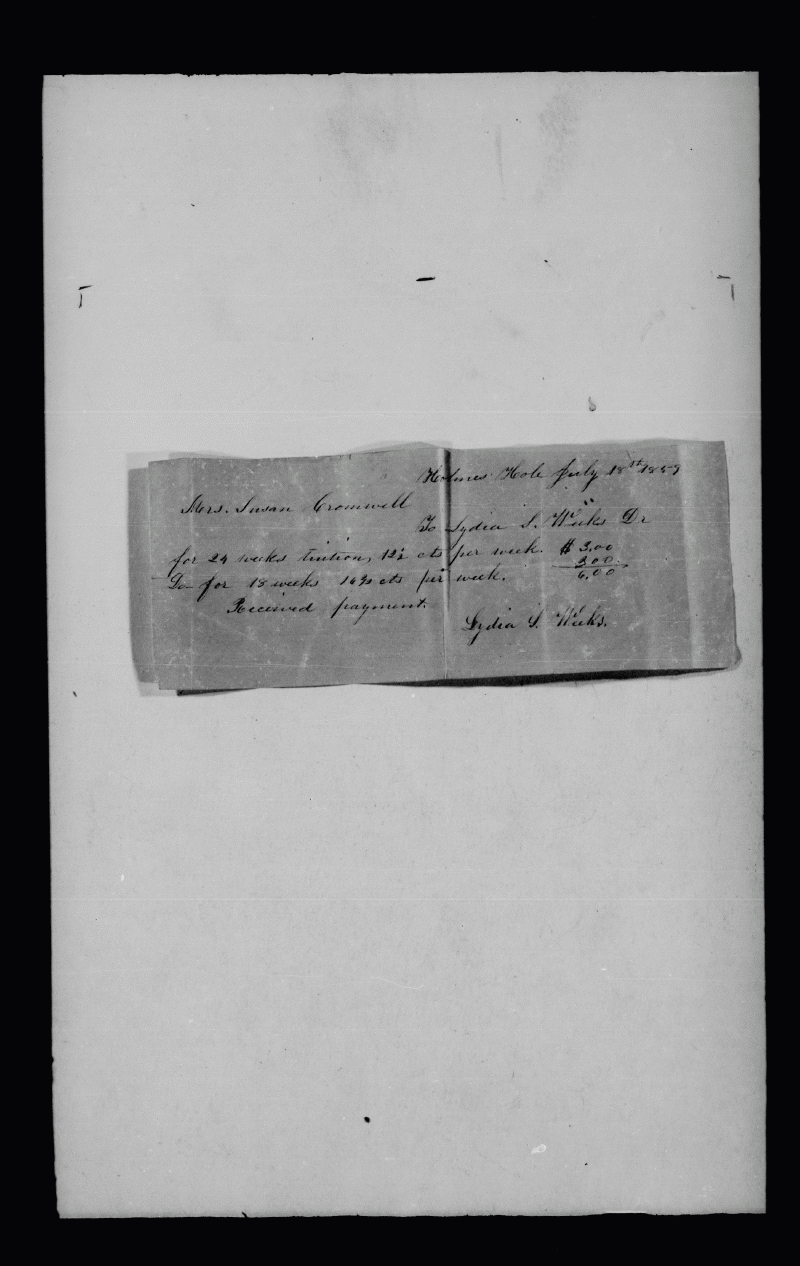 Holmes Hole July 18th 1857
Mrs. Susan Cromwell
To Lydia S. Weeks Dr
for 24 weeks tuition, 12½ cts per week. $ 3,00
Do for 18 weeks 16⅔ cts per week. 3,00
6,00
Received payment.
Lydia S. Weeks.